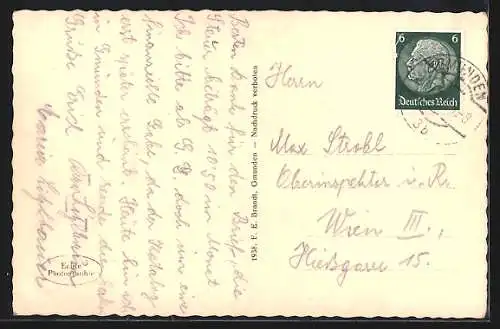 Besten Dank für den Brief, die
Steuer beträgt 10.50 im Monat
Ich bitte als G. G. doch um eine
finanzielle Gabe, da der Katalog
erst später erscheint. Heute bin ich
in Gmunden und sende die
Grüße
Echte
Photographie
1938. F. E. Brandt, Gmunden — Nachdruck verboten
6 6
Deutsches Reich
GMUNDEN
38
Herrn
Max Strobl
Oberinspektor i. R.
Wien III.,
Hießgasse 15.